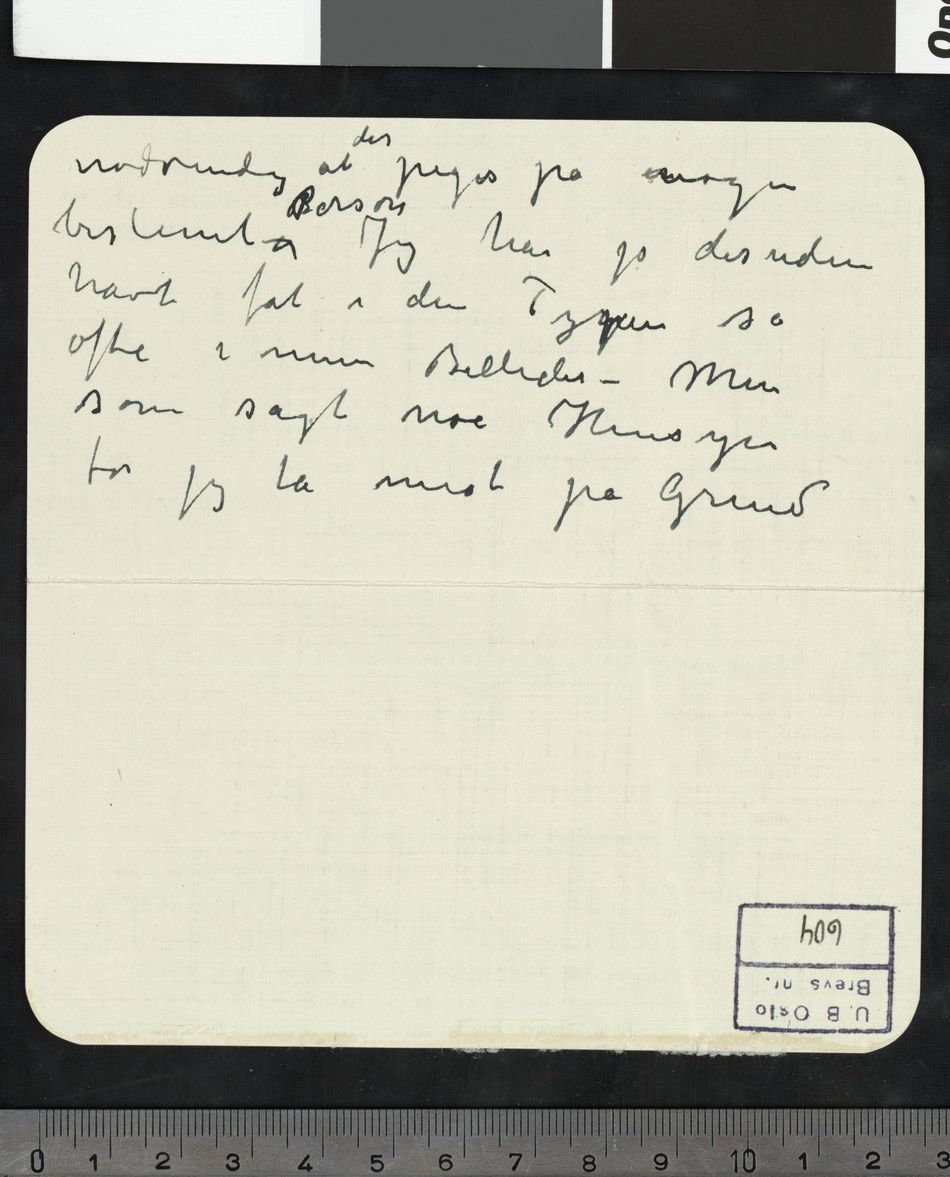 der
nødvendig at peges på nogen
Person
bestemt og Jeg har jo desuden
havt fat i den Typen så
ofte i mine Billeder – Men
som sagt noe Hensyn
tør jeg ta mest på Grund
604
Brevs. nr.
U. B Oslo
0 1 2 3 4 5 6 7 8 9 10 1 2 3